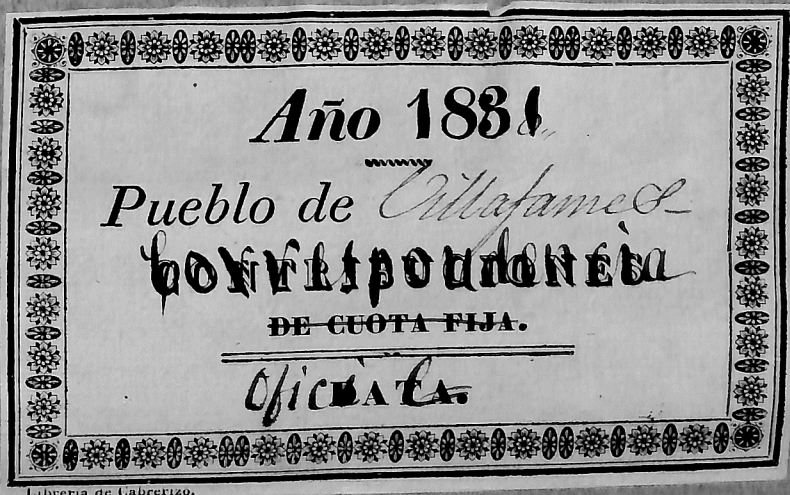 Año 1831
Pueblo de Villafames
Correspondencia
CONTRIBUCIONES
DE CUOTA FIJA.
Oficial
DATA.
Librería de Cabrerizo.